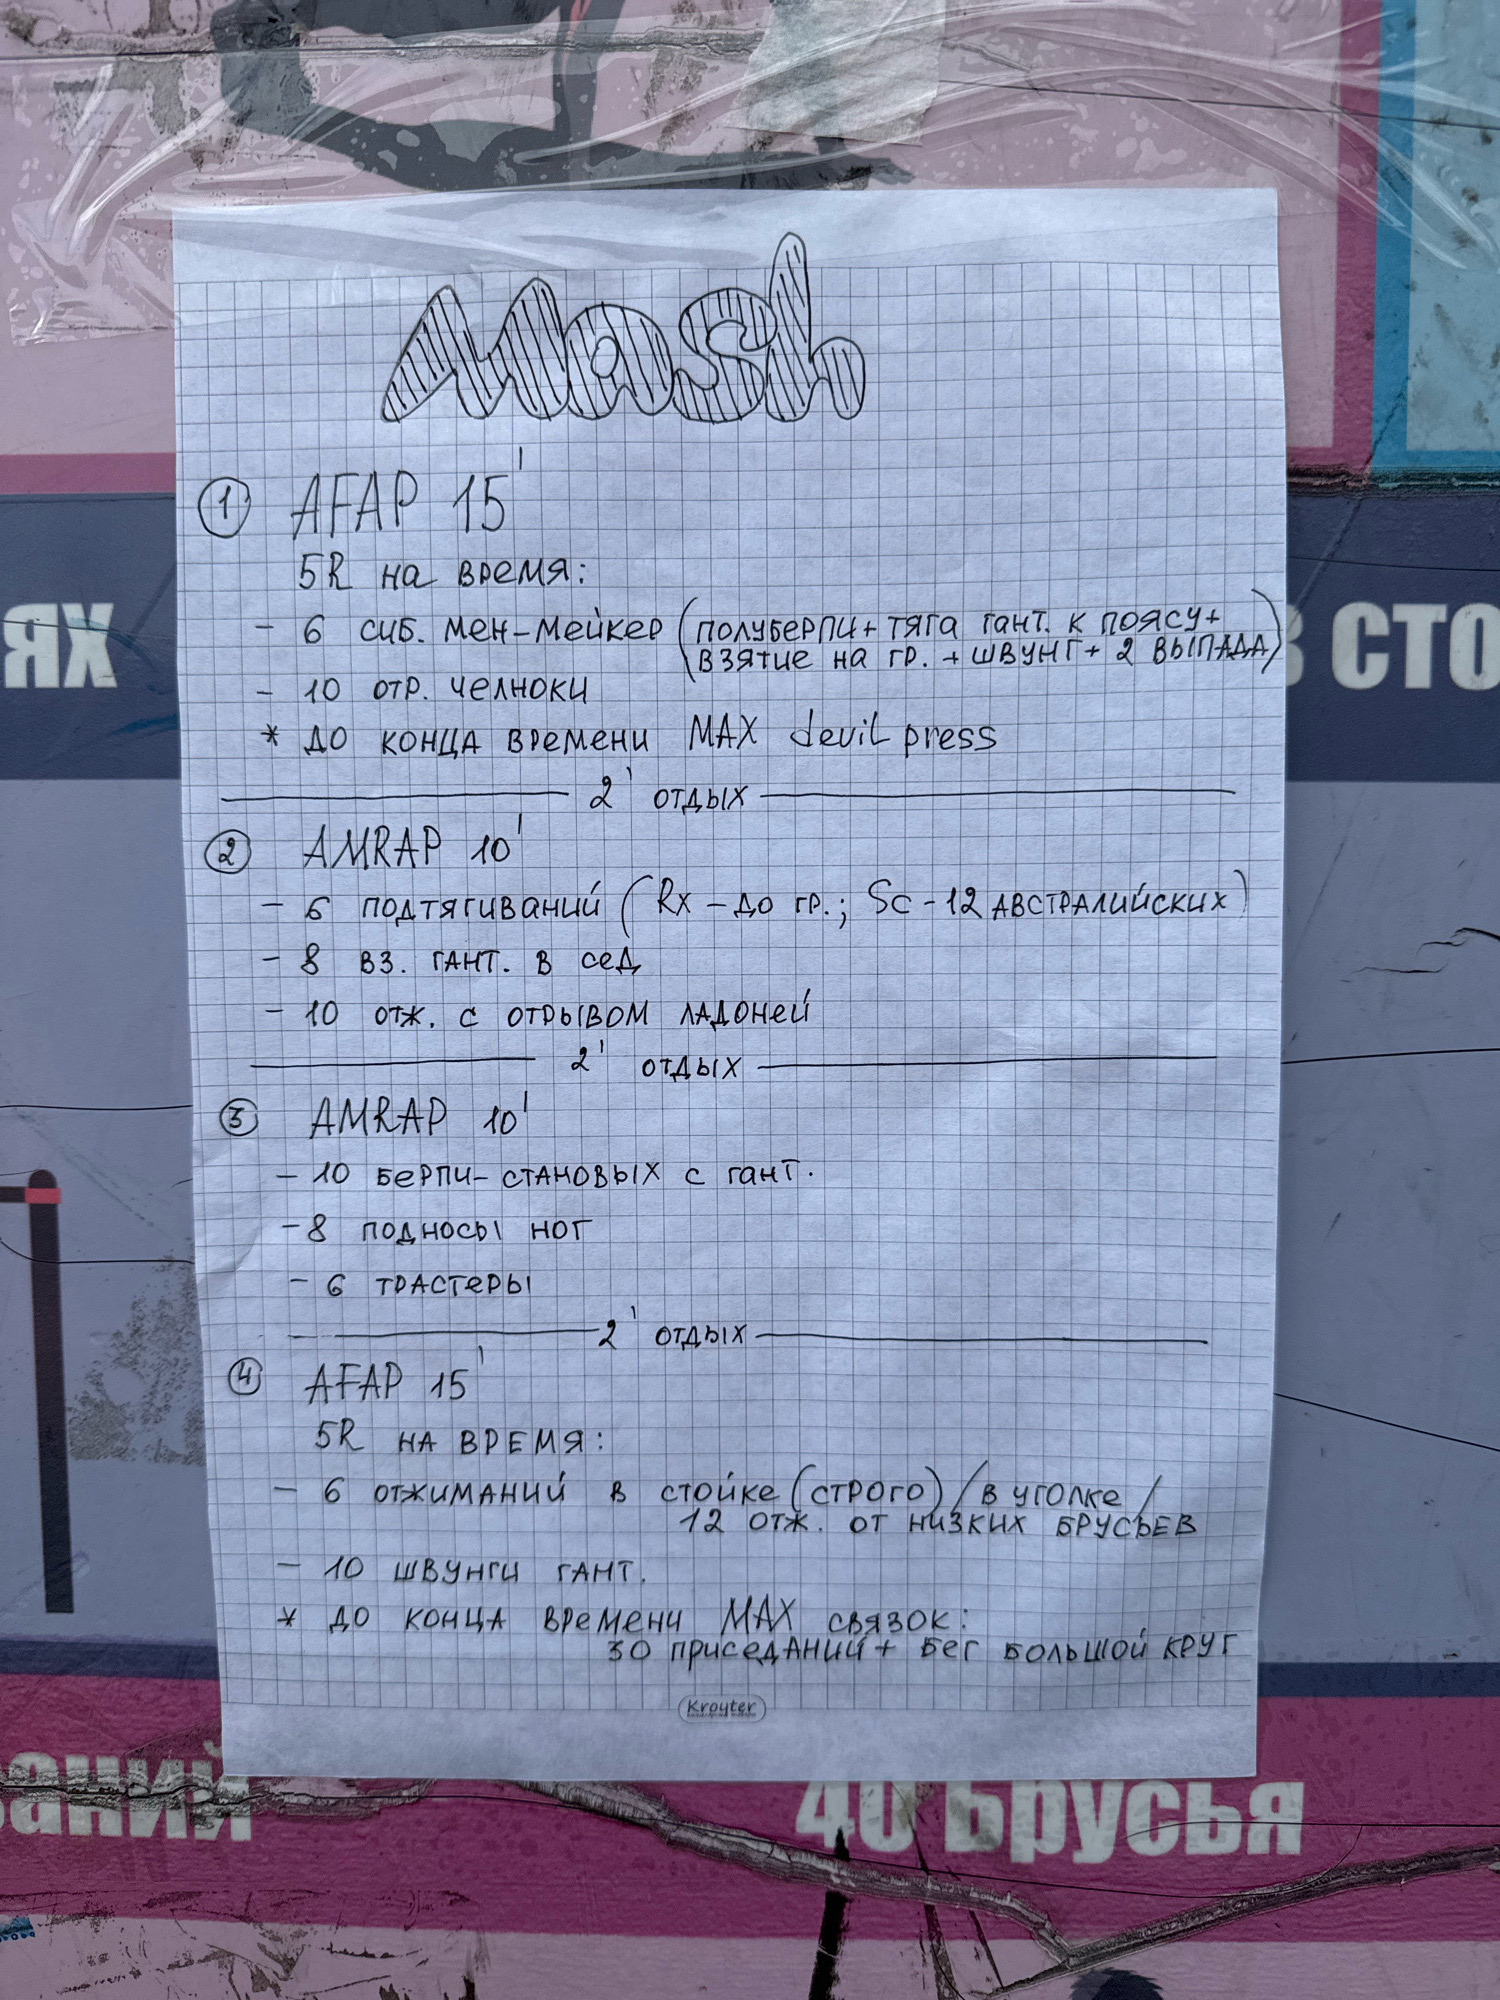 Mash
ЯХ
В СТО
1 AFAP 15'
5R на время:
- 6 сиб. мен-мейкер (полуберпи + тяга гант. к поясу +
взятие на гр. + швунг + 2 выпада)
- 10 отр. челноки
* до конца времени MAX devil press
2' отдых
2 AMRAP 10'
- 6 подтягиваний (Rx - до гр.; Sc - 12 австралийских)
- 8 вз. гант. в сед
- 10 отж. с отрывом ладоней
2' отдых
3 AMRAP 10'
- 10 берпи-становых с гант.
- 8 подносы ног
- 6 трастеры
2' отдых
4 AFAP 15'
5R на время:
- 6 отжиманий в стойке (строго) / в уголке /
12 отж. от низких брусьев
- 10 швунги гант.
* до конца времени MAX связок:
30 приседаний + бег большой круг
Kroyter
ваний
40 Брусья